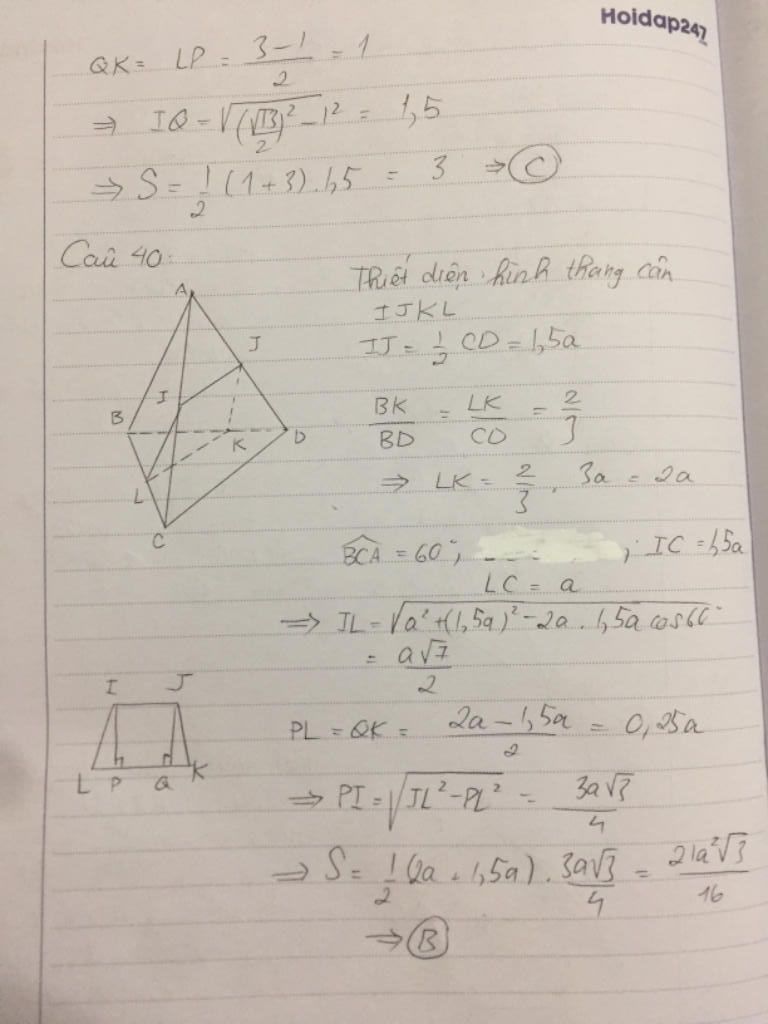 Hoidap247
QK = LP = (3-1)/2 = 1
⇒ IQ = √((√13/2)² - 1²) = 1,5
⇒ S = 1/2 (1+3).1,5 = 3 ⇒ C
Câu 40:
Thiết diện: hình thang cân
IJKL
IJ = 1/2 CD = 1,5a
BK/BD = LK/CD = 2/3
⇒ LK = 2/3 . 3a = 2a
A
J
I
B
K
D
L
C
BCA = 60°; ; IC = 1,5a
LC = a
⇒ IL = √(a² + (1,5a)² - 2a . 1,5a cos60°
= a√7/2
I J
L P Q K
PL = QK = (2a - 1,5a)/2 = 0,25a
⇒ PI = √(IL² - PL²) = 3a√3/4
⇒ S = 1/2 (2a + 1,5a) . 3a√3/4 = 21a²√3/16
⇒ B